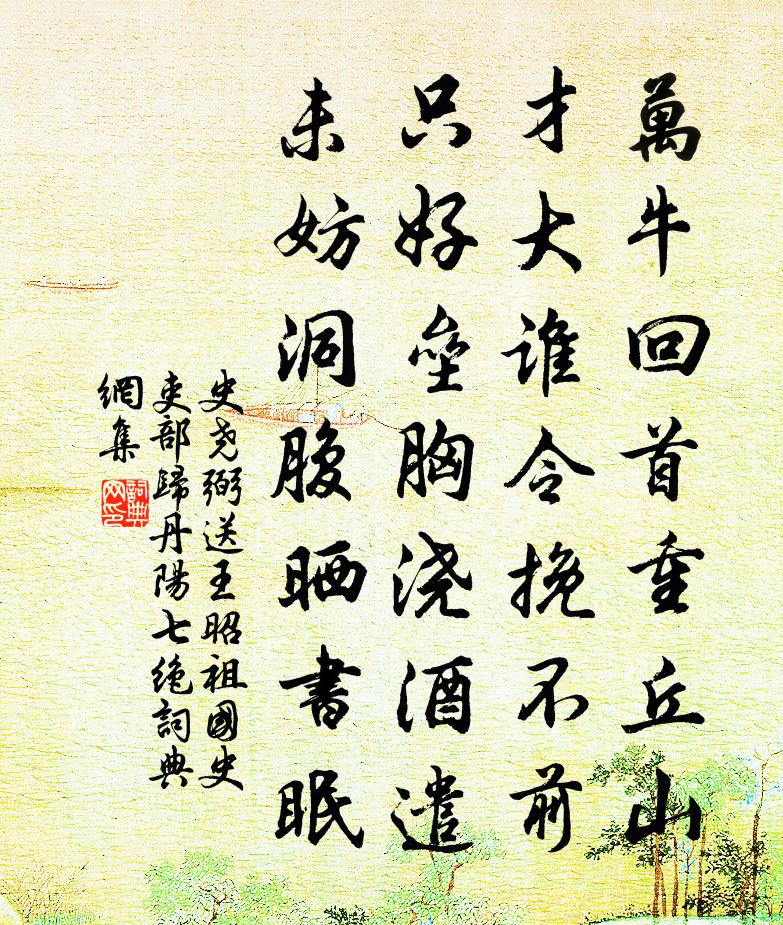 萬牛回首重丘山
才大誰令挽不前
只好壘胸浇酒遣
未妨洞腹晒書眠
史尧弼送王昭祖國史
吏部歸丹陽七绝詞典
網集
詞典
网印